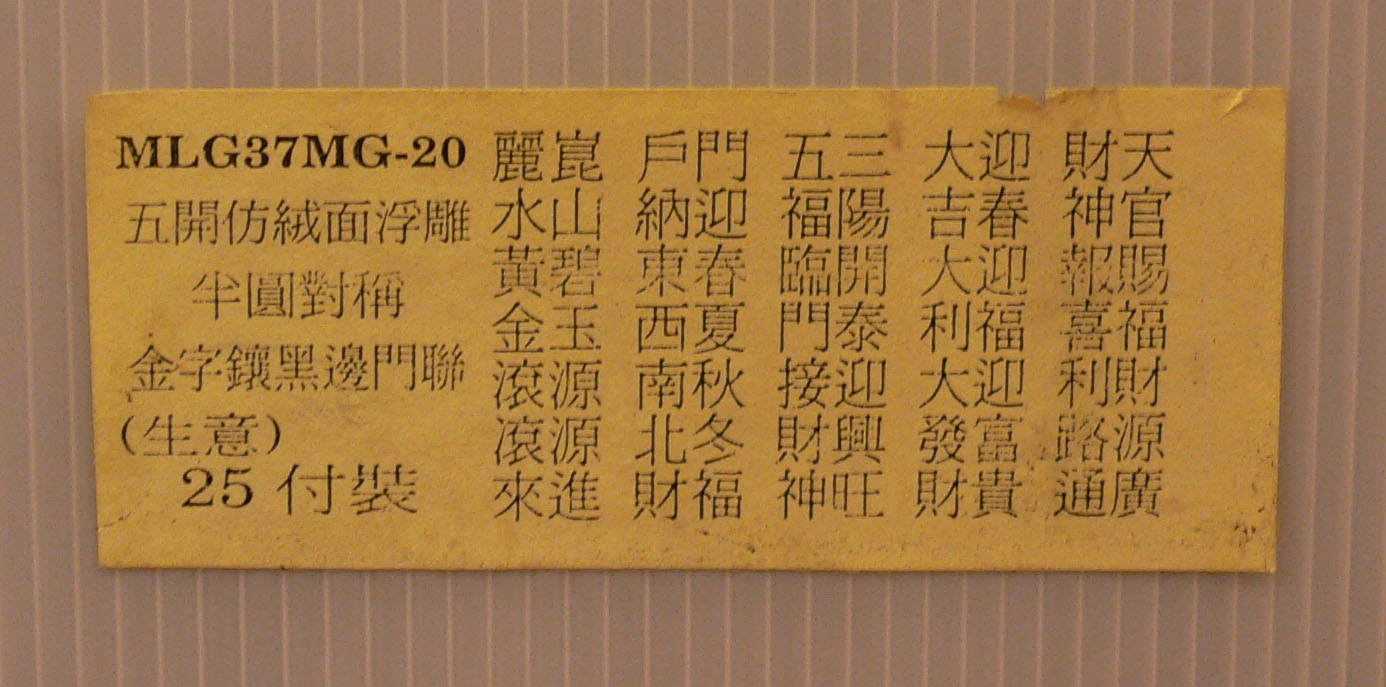 MLG37MG-20
五開仿絨面浮雕
半圓對稱
金字鑲黑邊門聯
(生意)
25 付裝
天官賜福財源廣
財神報喜利路通
迎春迎福迎富貴
大吉大利大發財
三陽開泰迎興旺
五福臨門接財神
門迎春夏秋冬福
戶納東西南北財
崑山碧玉源源進
麗水黃金滾滾來